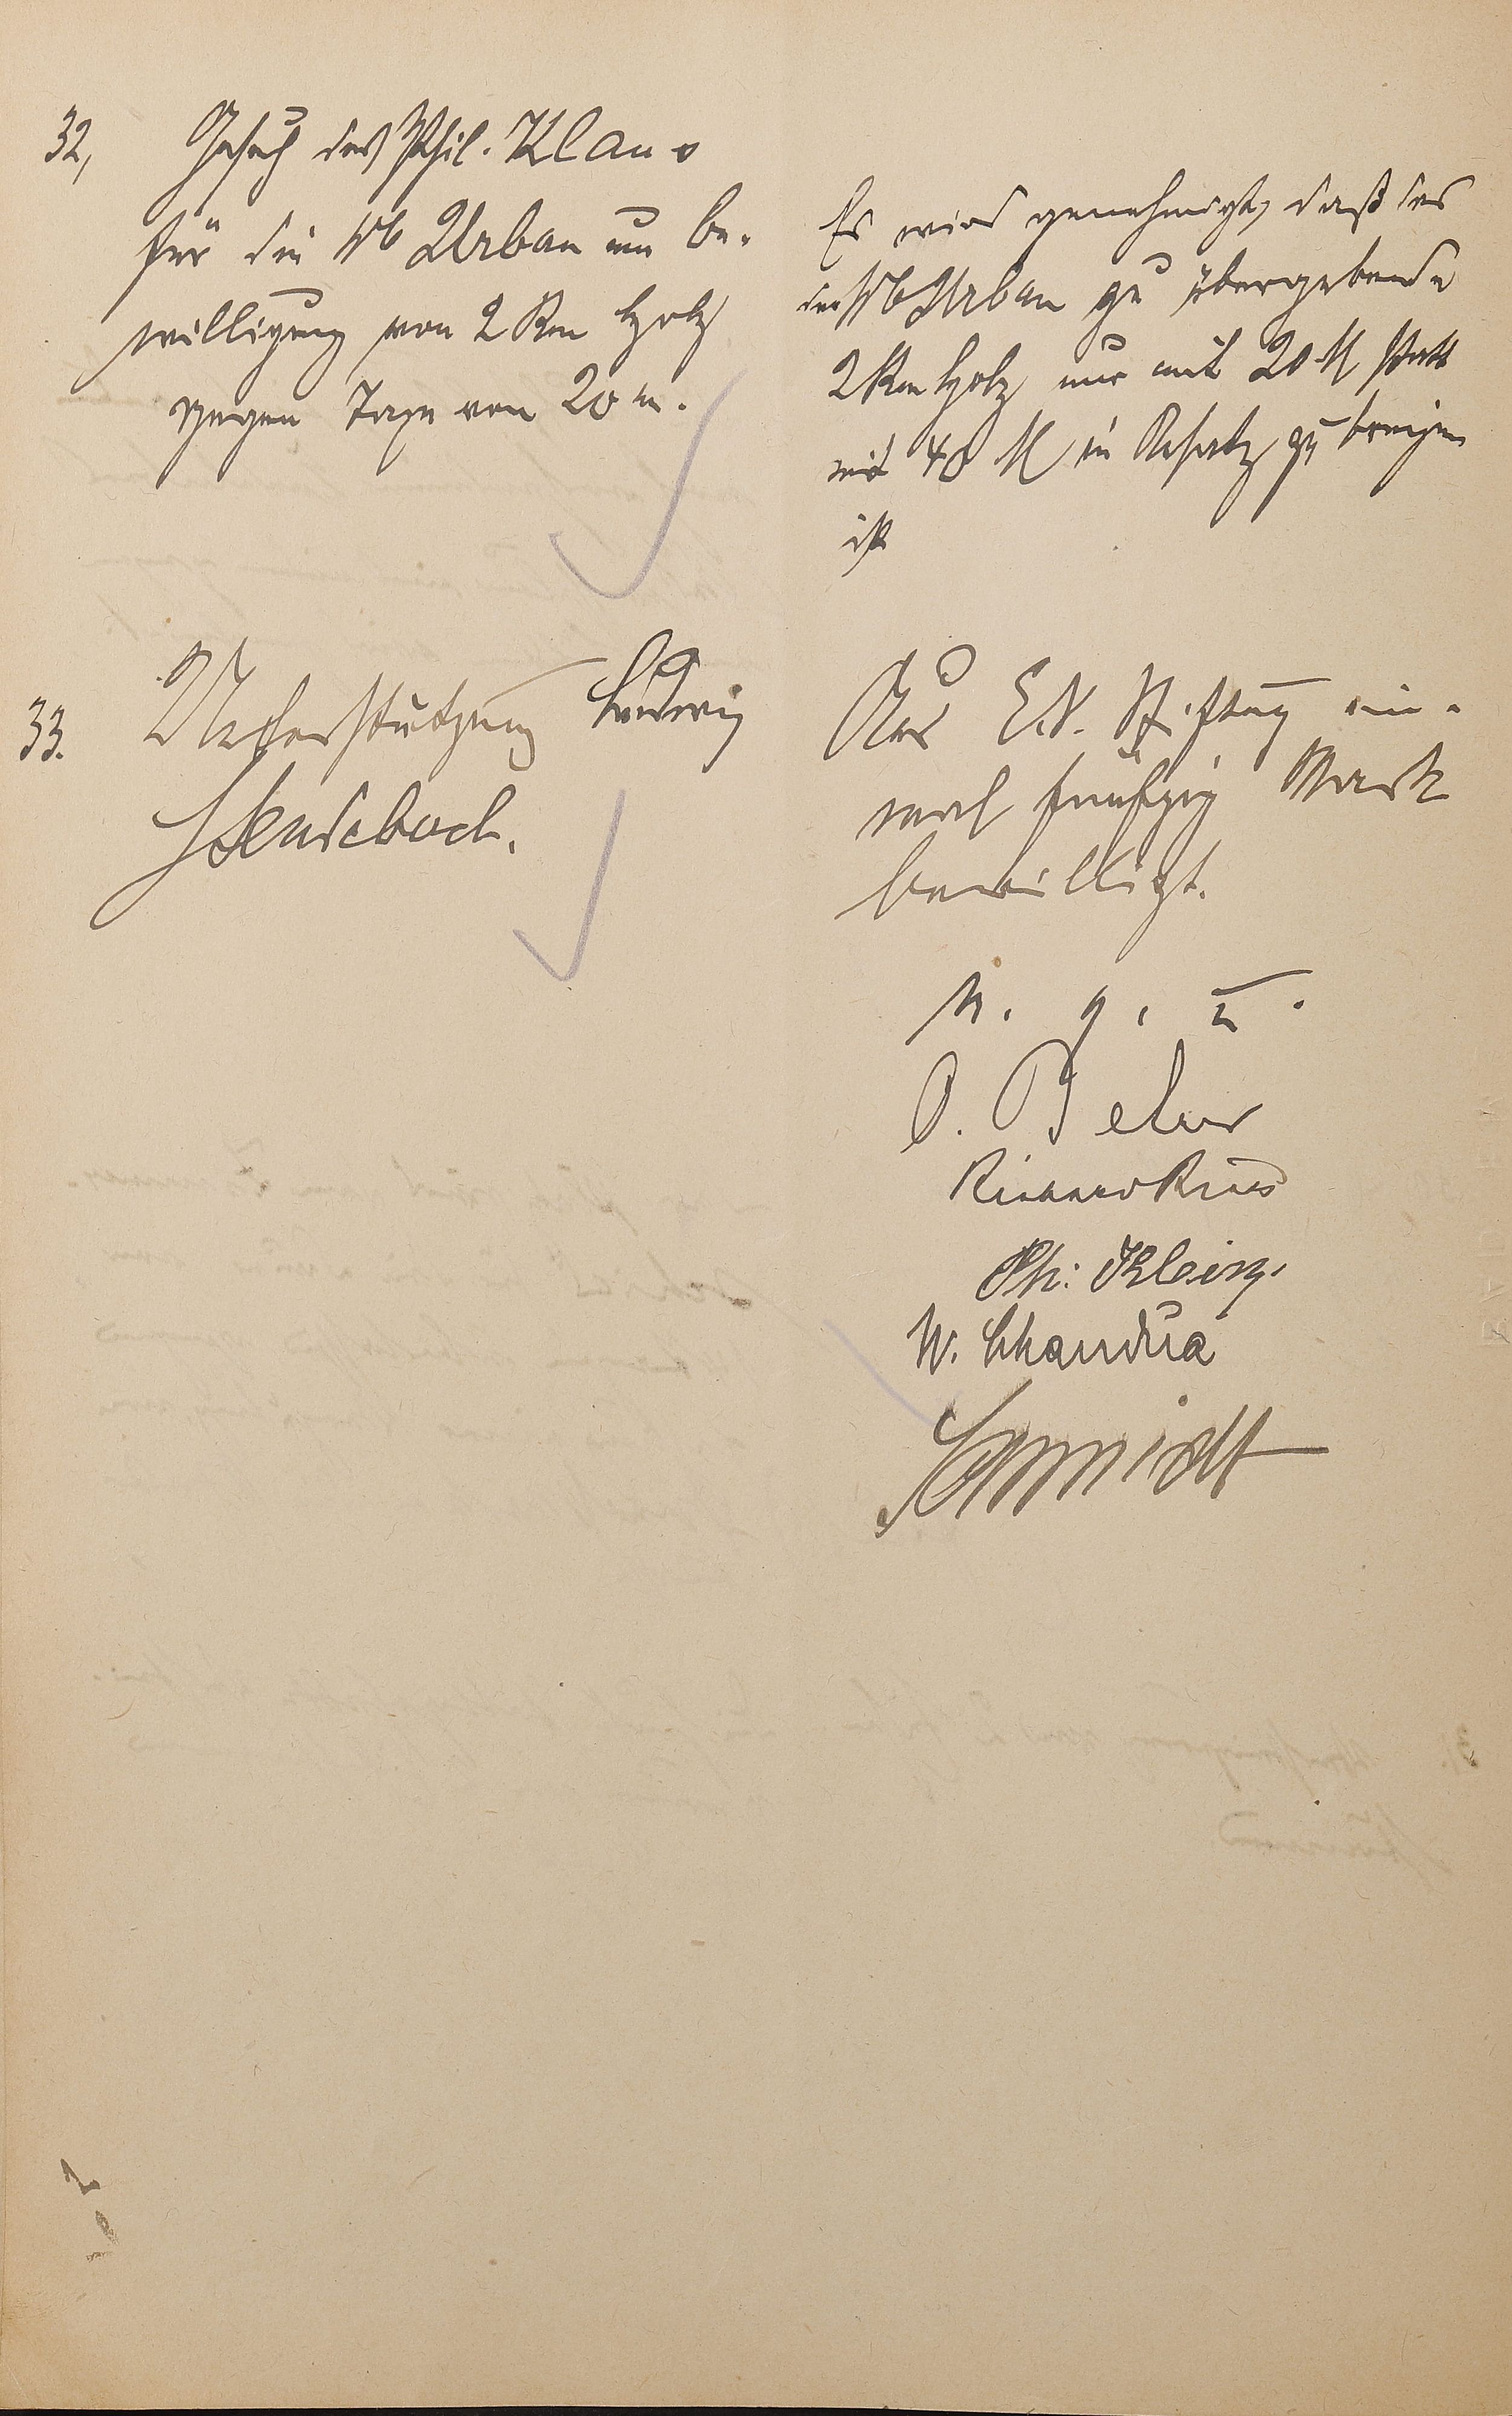 32,
Gesuch des Phil. Klan
für die Wb Urban um Be-
willigung von 2 Rm Holz
gegen Taxe von 20 m.
Es wird genehmigt, daß das
der Wb Urban zu übergebende
2 Rm Holz nur mit 20 M statt
mit 40 M in Ansatz zu bringen
ist
33.
Unterstützung Ludwig
Aus E.N. Stiftung ein-
mal fünfzig Mark
bewilligt.
v. g. u.
Ph: Klein
W. Chandua
Schmidt